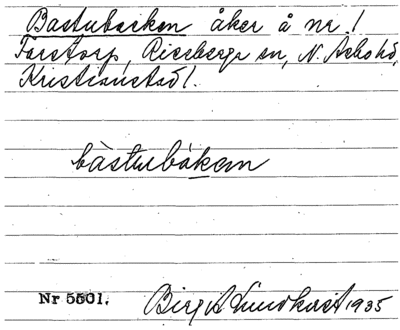 Bastubacken åker å nr 1
Färstorp, Riseberga sn, N. Åsbo hd,
Kristianstad l.
bàstubákən
Nr 5501.
Birgit Lundkvist 1935